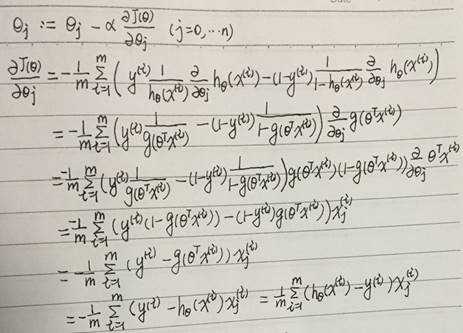 θj := θj - α ∂J(θ)/∂θj (j=0,…n)
∂J(θ)/∂θj = -1/m ∑_{i=1}^{m} ( y^(i) 1/hθ(x^(i)) ∂/∂θj hθ(x^(i)) - (1-y^(i)) 1/(1-hθ(x^(i))) ∂/∂θj hθ(x^(i)) )
= -1/m ∑_{i=1}^{m} ( y^(i) 1/g(θ^T x^(i)) - (1-y^(i)) 1/(1-g(θ^T x^(i))) ) ∂/∂θj g(θ^T x^(i))
= -1/m ∑_{i=1}^{m} ( y^(i) 1/g(θ^T x^(i)) - (1-y^(i)) 1/(1-g(θ^T x^(i))) ) g(θ^T x^(i)) (1-g(θ^T x^(i))) ∂/∂θj θ^T x^(i)
= -1/m ∑_{i=1}^{m} ( y^(i) (1-g(θ^T x^(i))) - (1-y^(i)) g(θ^T x^(i)) ) xj^(i)
= -1/m ∑_{i=1}^{m} ( y^(i) - g(θ^T x^(i)) ) xj^(i)
= -1/m ∑_{i=1}^{m} ( y^(i) - hθ(x^(i)) xj^(i) = 1/m ∑_{i=1}^{m} (hθ(x^(i)) - y^(i)) xj^(i)